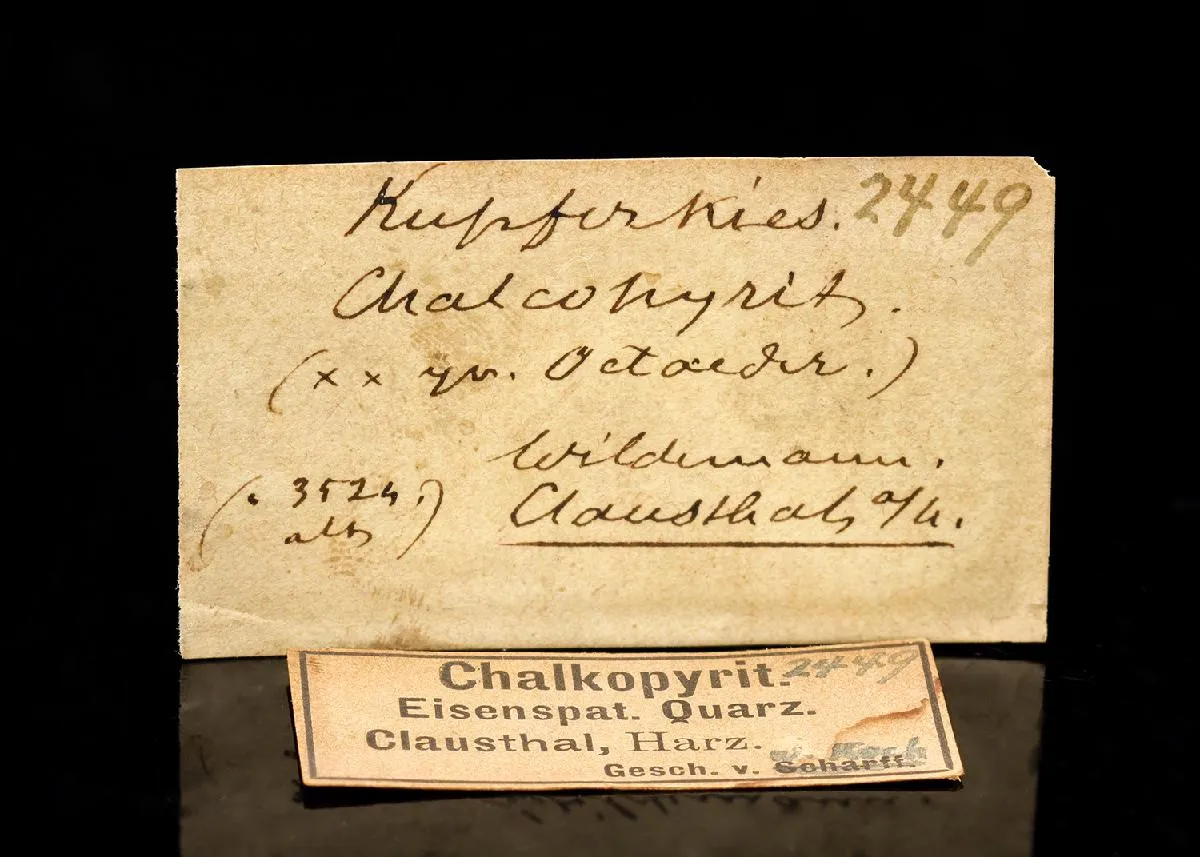 Kupferkies. 2449
Chalcopyrit.
(x x gr. Octaeder.)
Wildemann.
(. 3524.) Clausthal, a/h.
alt
Chalkopyrit. 2449
Eisenspat. Quarz.
Clausthal, Harz.
v. Koch
Gesch. v. Scharff.